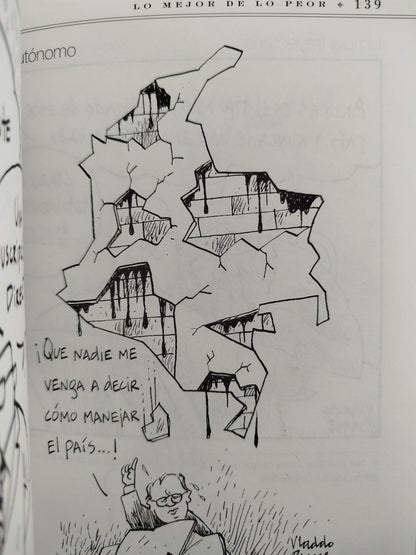 LO MEJOR DE LO PEOR ✦ 139
utónomo
¡QUE NADIE ME
VENGA A DECIR
CÓMO MANEJAR
El PAÍS...!
Vladdo